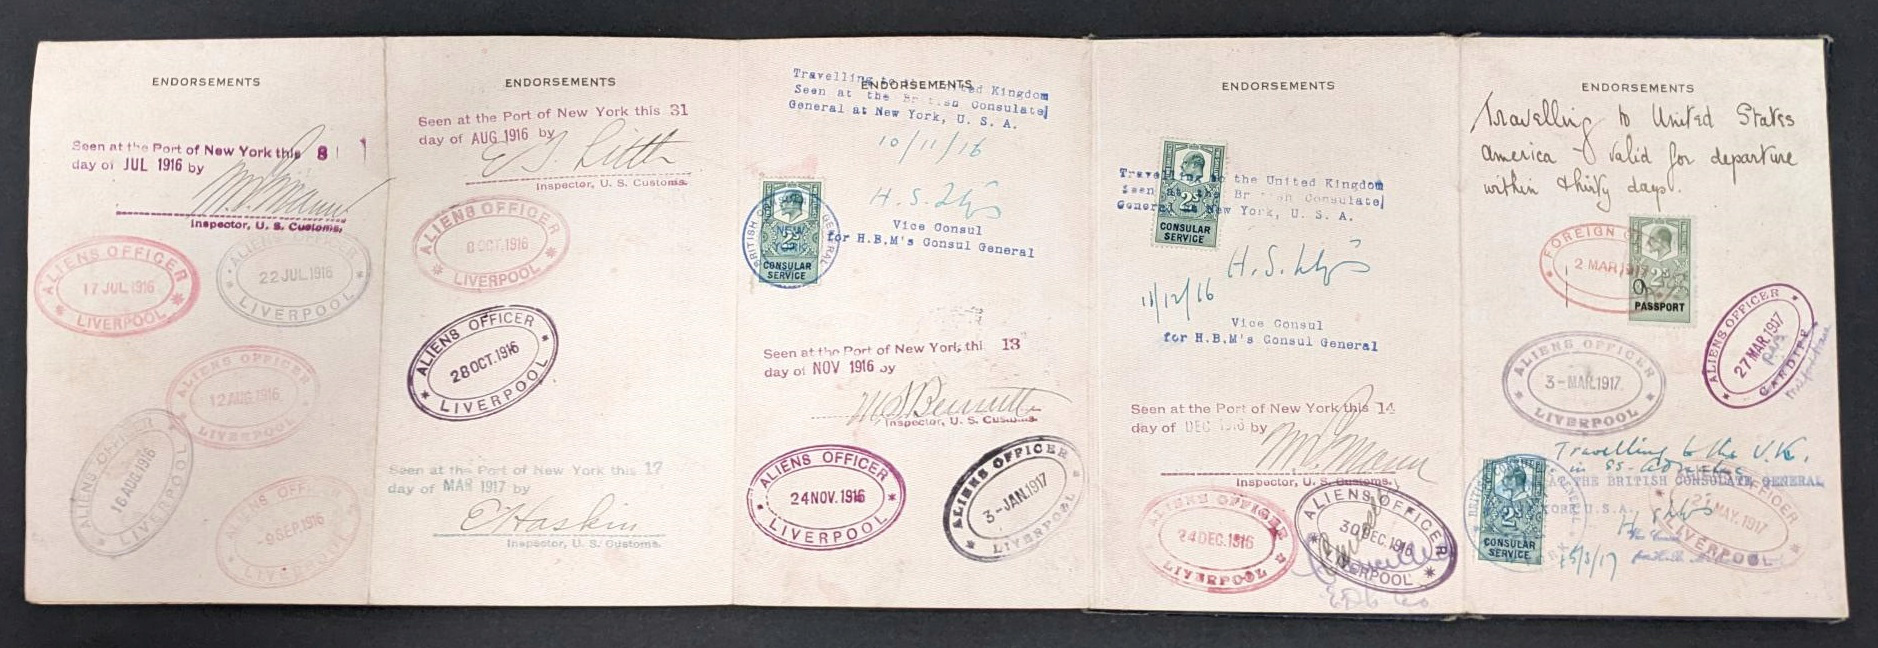 ENDORSEMENTS
Seen at the Port of New York this 8
day of JUL 1916 by
Inspector, U. S. Customs.
ALIENS OFFICER
17 JUL 1916
LIVERPOOL
ALIENS OFFICER
22 JUL 1916
LIVERPOOL
ALIENS OFFICER
12 AUG 1916
LIVERPOOL
ALIENS OFFICER
16 AUG 1916
LIVERPOOL
ALIENS OFFICER
-9 SEP 1916
LIVERPOOL
ENDORSEMENTS
Seen at the Port of New York this 31
day of AUG 1916 by
Inspector, U. S. Customs.
ALIENS OFFICER
8 OCT. 1916
LIVERPOOL
ALIENS OFFICER
28 OCT. 1916
LIVERPOOL
Seen at the Port of New York this 17
day of MAR 1917 by
E Haskin
Inspector, U. S. Customs.
ENDORSEMENTS
Travelling to the United Kingdom
Seen at the British Consulate
General at New York, U. S. A.
10/11/16
BRITISH CONSULATE GENERAL
NEW YORK
2s
CONSULAR
SERVICE
Vice Consul
for H.B.M's Consul General
Seen at the Port of New York thi 13
day of NOV 1916 by
Inspector, U. S. Customs.
ALIENS OFFICER
24 NOV. 1916
LIVERPOOL
ALIENS OFFICER
3-JAN. 1917
LIVERPOOL
ENDORSEMENTS
2s
CONSULAR
SERVICE
Travelling to the United Kingdom
Seen at the British Consulate
General at New York, U. S. A.
11/12/16
Vice Consul
for H.B.M's Consul General
Seen at the Port of New York this 14
day of DEC 1916 by
Inspector, U. S. Customs.
ALIENS OFFICER
24 DEC. 1916
LIVERPOOL
ALIENS OFFICER
30 DEC 1916
LIVERPOOL
ENDORSEMENTS
Travelling to United States
America - valid for departure
within thirty days.
FOREIGN
2 MAR 1917
PASSPORT
ALIENS OFFICER
27 MAR. 1917
CARDIFF
ALIENS OFFICER
3-MAR. 1917
LIVERPOOL
Travelling to the U.K.
in SS.
AT THE BRITISH CONSULATE GENERAL
YORK U.S.A.
2s
CONSULAR
SERVICE
ALIENS OFFICER
MAY. 1917
LIVERPOOL